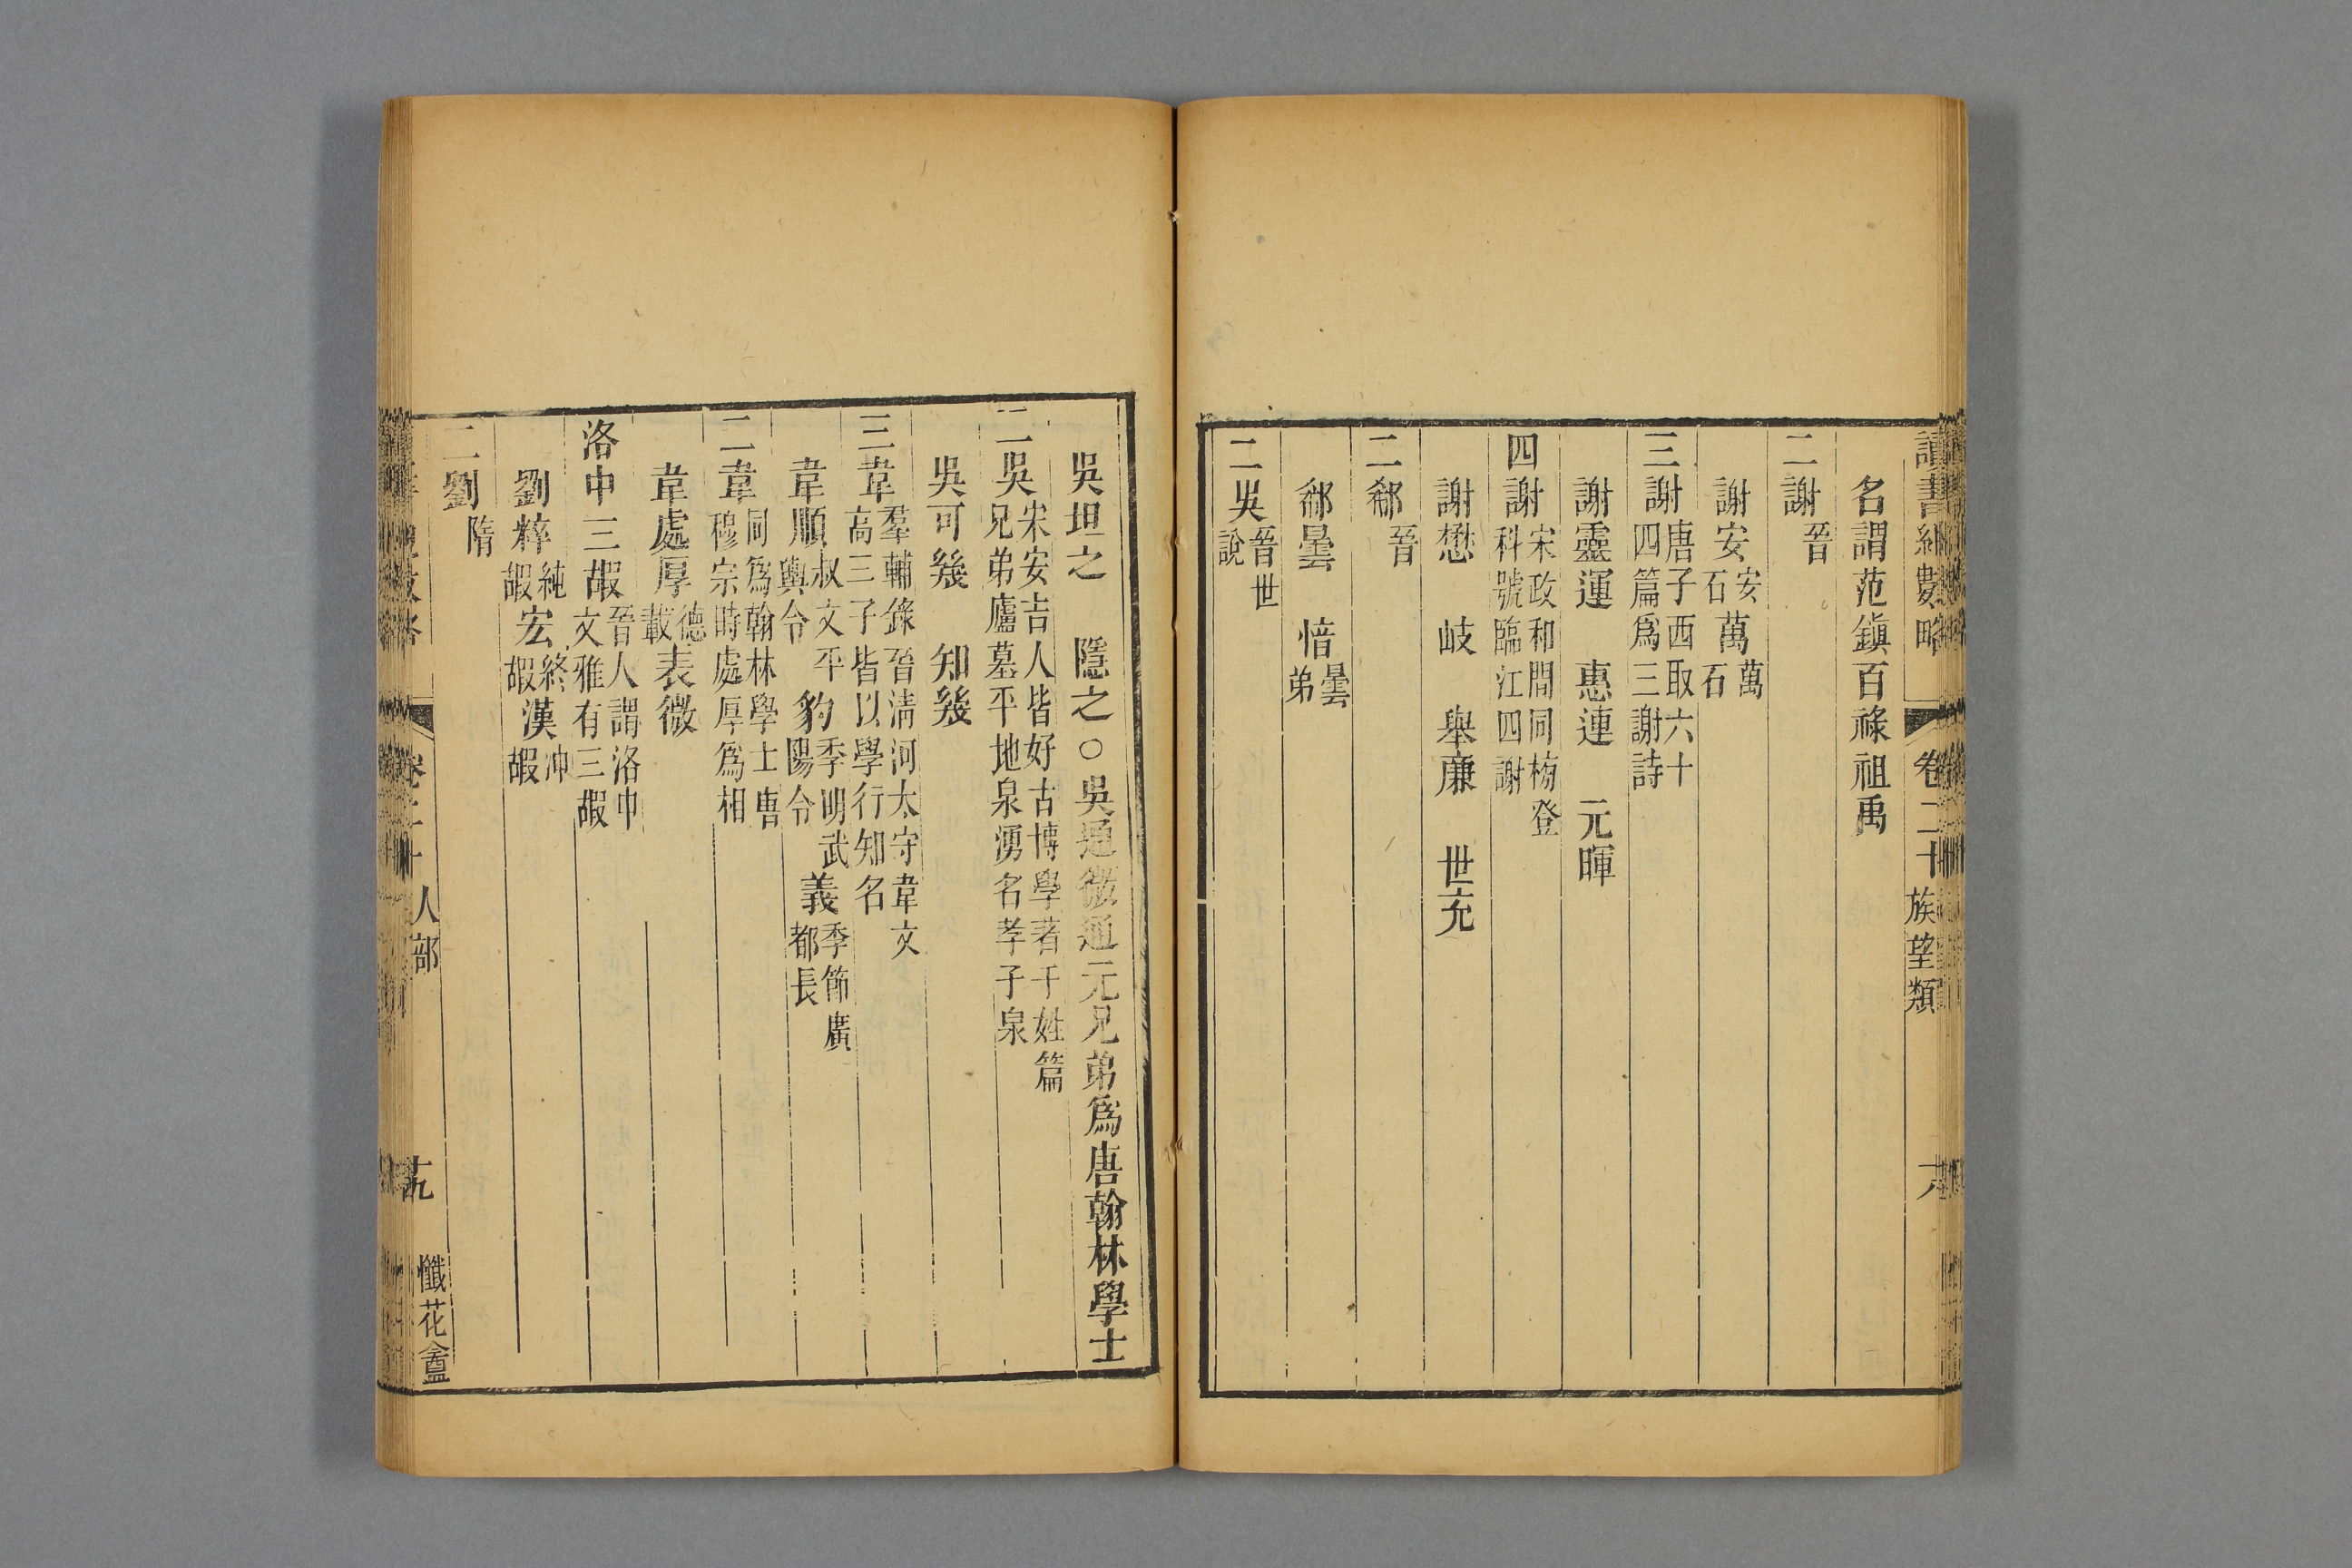 讀書紀數略 卷二十 族望類
名謂范鎭百祿祖禹
二謝 晉
謝安 安石 萬 萬石
三謝 唐子西取六十四篇爲三謝詩
謝靈運 惠連 元暉
四謝 宋政和間同榜登科號臨江四謝
謝懋 岐 舉廉 世充
二郗 晉
郗曇 愔 曇弟
二吳 晉世說
吳坦之 隱之○吳通微通元兄弟爲唐翰林學士
二吳 宋安吉人皆好古博學著千姓篇兄弟廬墓平地泉湧名孝子泉
吳可幾 知幾
三韋 羣輔錄晉淸河太守韋文高三子皆以學行知名
韋順 叔文平輿令 豹 季明武陽令 義 季節廣都長
二韋 同爲翰林學士唐穆宗時處厚爲相
韋處厚 德載 表微
洛中三嘏 晉人謂洛中文雅有三嘏
劉粹 純嘏 宏 終嘏 漢 沖嘏
二劉 隋
卷二十 人部 十九 懺花盦